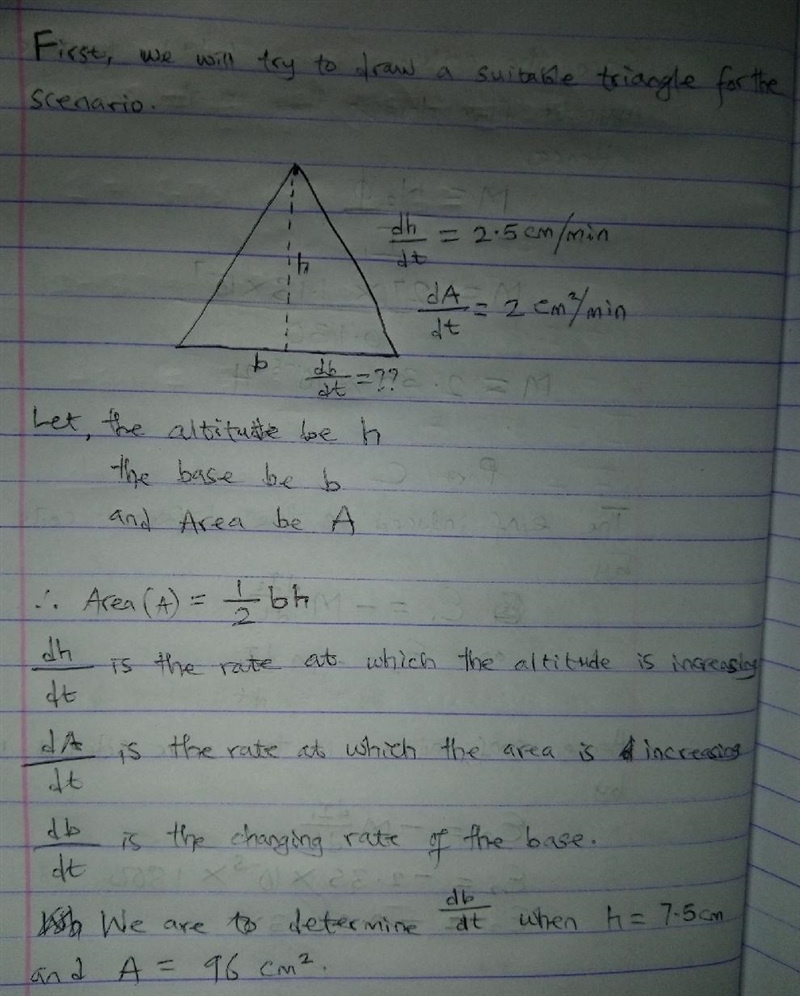 First, we will try to draw a suitable triangle for the
scenario.
dh/dt = 2.5 cm/min
h
dA/dt = 2 cm²/min
b db/dt = ??
Let, the altitude be h
the base be b
and Area be A
∴ Area (A) = 1/2 bh
dh/dt is the rate at which the altitude is increasing
dA/dt is the rate at which the area is increasing
db/dt is the changing rate of the base.
We are to determine db/dt when h = 7.5 cm
and A = 96 cm².